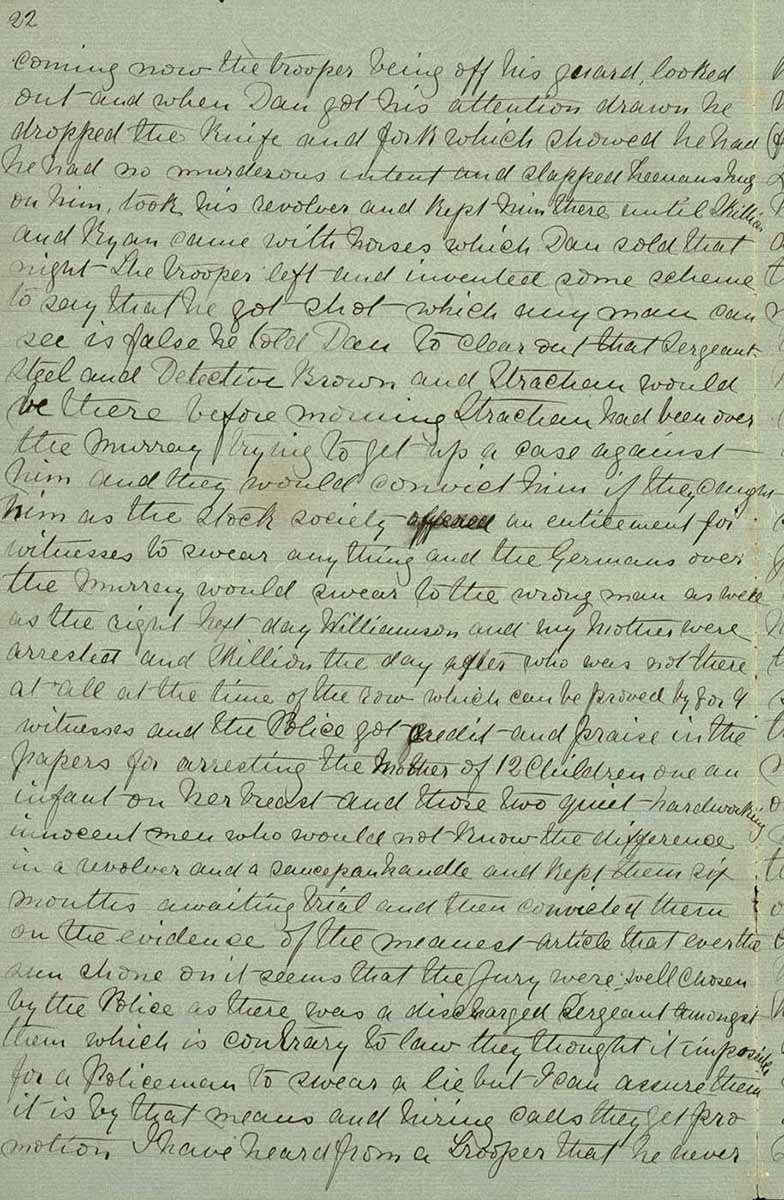 22
coming now the trooper being off his guard, looked
out and when Dan got his attention drawn he
dropped the knife and fork which showed he had
he had no murderous intent and clapped heenans hug
on him, took his revolver and kept him there until Skillion
and Ryan came with horses which Dan sold that
night The trooper left and invented some scheme
to say that he got shot which any man can
see is false he told Dan to clear out that Sergeant
Steel and Detective Brown and Strachan would
be there before morning Strachan had been over
the Murray trying to get up a case against
him and they would convict him if they caught
him as the stock society offered an enticement for
witnesses to swear anything and the Germans over
the Murray would swear to the wrong man as well
as the right Next day Williamson and my Mother were
arrested and Skillion the day after who was not there
at all at the time of the row which can be proved by 8 or 9
witnesses and the Police got credit and praise in the
papers for arresting the Mother of 12 Children one an
infant on her breast and those two quiet hardworking
innocent men who would not know the difference
in a revolver and a saucepan handle and kept them six
months awaiting trial and then convicted them
on the evidence of the meanest article that ever the
sun shone on it seems that the Jury were well chosen
by the Police as there was a discharged Sergeant amongst
them which is contrary to law they thought it impossible
for a Policeman to swear a lie but I can assure them
it is by that means and hiring cads they get pro
motion I have heard from a Trooper that he never